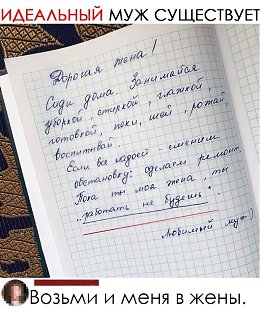 ИДЕАЛЬНЫЙ МУЖ СУЩЕСТВУЕТ
Дорогая жена!
Сиди дома. Занимайся
уборкой, стиркой, глажкой,
готовкой, пеки, шей, рожай,
воспитывай.
Если всё надоест - сменим
обстановку: сделаем ремонт.
Пока ты моя жена, ты
"работать не будешь".
Любимый муж!
Возьми и меня в жены.